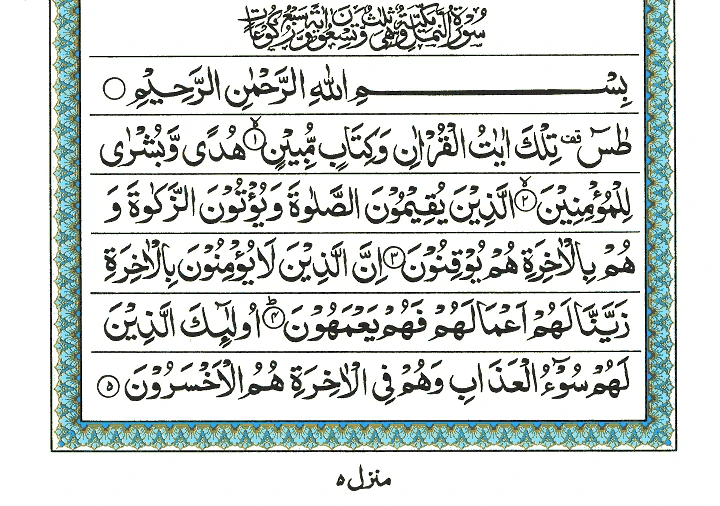 سُوۡرَةُ النَّمۡلِ مَكِّيَّةٌ وَّهِيَ ثَلٰثٌ وَّتِسۡعُوۡنَ اٰيَةً وَّسَبۡعُ رُكُوۡعَاتٍ
بِسۡمِ اللهِ الرَّحۡمٰنِ الرَّحِيۡمِ ○
طٰسٓ قف تِلۡكَ اٰيٰتُ الۡقُرۡاٰنِ وَكِتَابٍ مُّبِيۡنٍۙ‏﴿۱﴾ هُدًى وَّبُشۡرٰى
لِلۡمُؤۡمِنِيۡنَۙ‏﴿۲﴾ الَّذِيۡنَ يُقِيۡمُوۡنَ الصَّلٰوةَ وَيُؤۡتُوۡنَ الزَّكٰوةَ وَ
هُمۡ بِالۡاٰخِرَةِ هُمۡ يُوۡقِنُوۡنَ‏﴿۳﴾ اِنَّ الَّذِيۡنَ لَا يُؤۡمِنُوۡنَ بِالۡاٰخِرَةِ
زَيَّنَّا لَهُمۡ اَعۡمَالَهُمۡ فَهُمۡ يَعۡمَهُوۡنَؕ‏﴿۴﴾ اُولٰٓٮِٕكَ الَّذِيۡنَ
لَهُمۡ سُوۡٓءُ الۡعَذَابِ وَهُمۡ فِى الۡاٰخِرَةِ هُمُ الۡاَخۡسَرُوۡنَ‏﴿۵﴾
منزل ۵